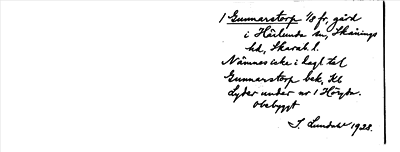 1 Gunnarstorp 1/8 fr, gård
i Härlunda sn, Skånings
hd, Skarab. l.
Nämnes icke i kagl. tal
Gunnarstorp bek. kl
Lyder under nr 1 Höyda.
Obebyggt
S. Lundahl 1928.